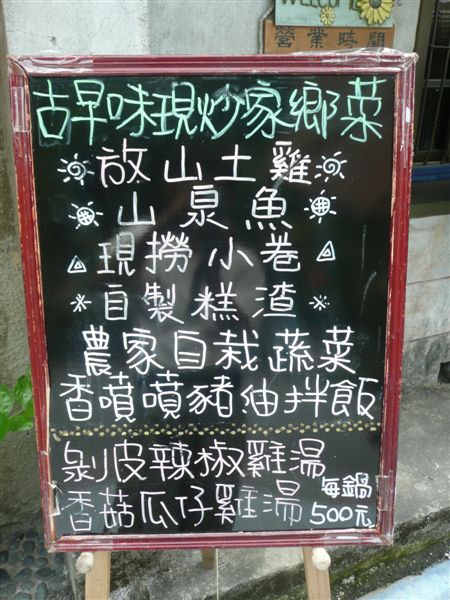 WELCOME
營業時間
古早味現炒家鄉菜
放山土雞
山泉魚
現撈小卷
自製糕渣
農家自栽蔬菜
香噴噴豬油拌飯
剝皮辣椒雞湯
香菇瓜仔雞湯
每鍋
500元